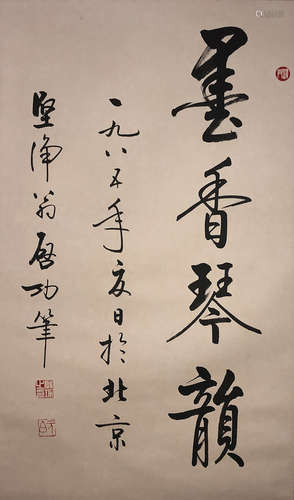 墨香琴韻
一九八五年夏日於北京
堅淨翁啟功筆